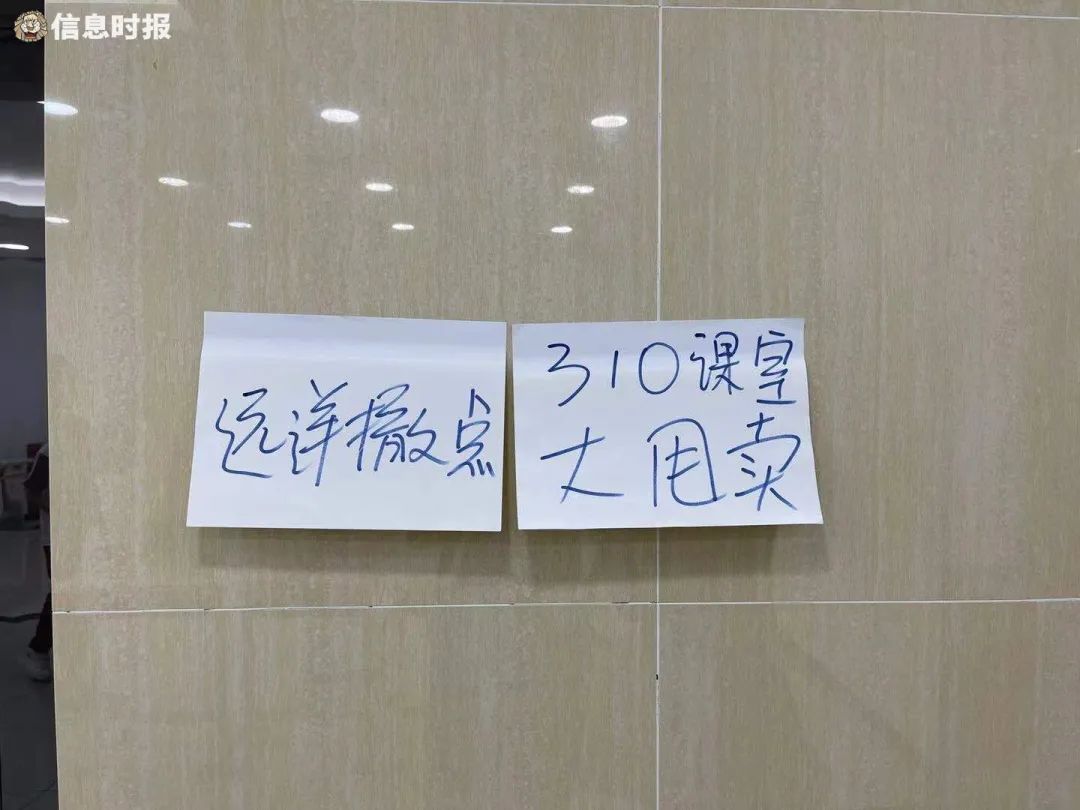 信息时报
远洋撤点
310课室
大甩卖